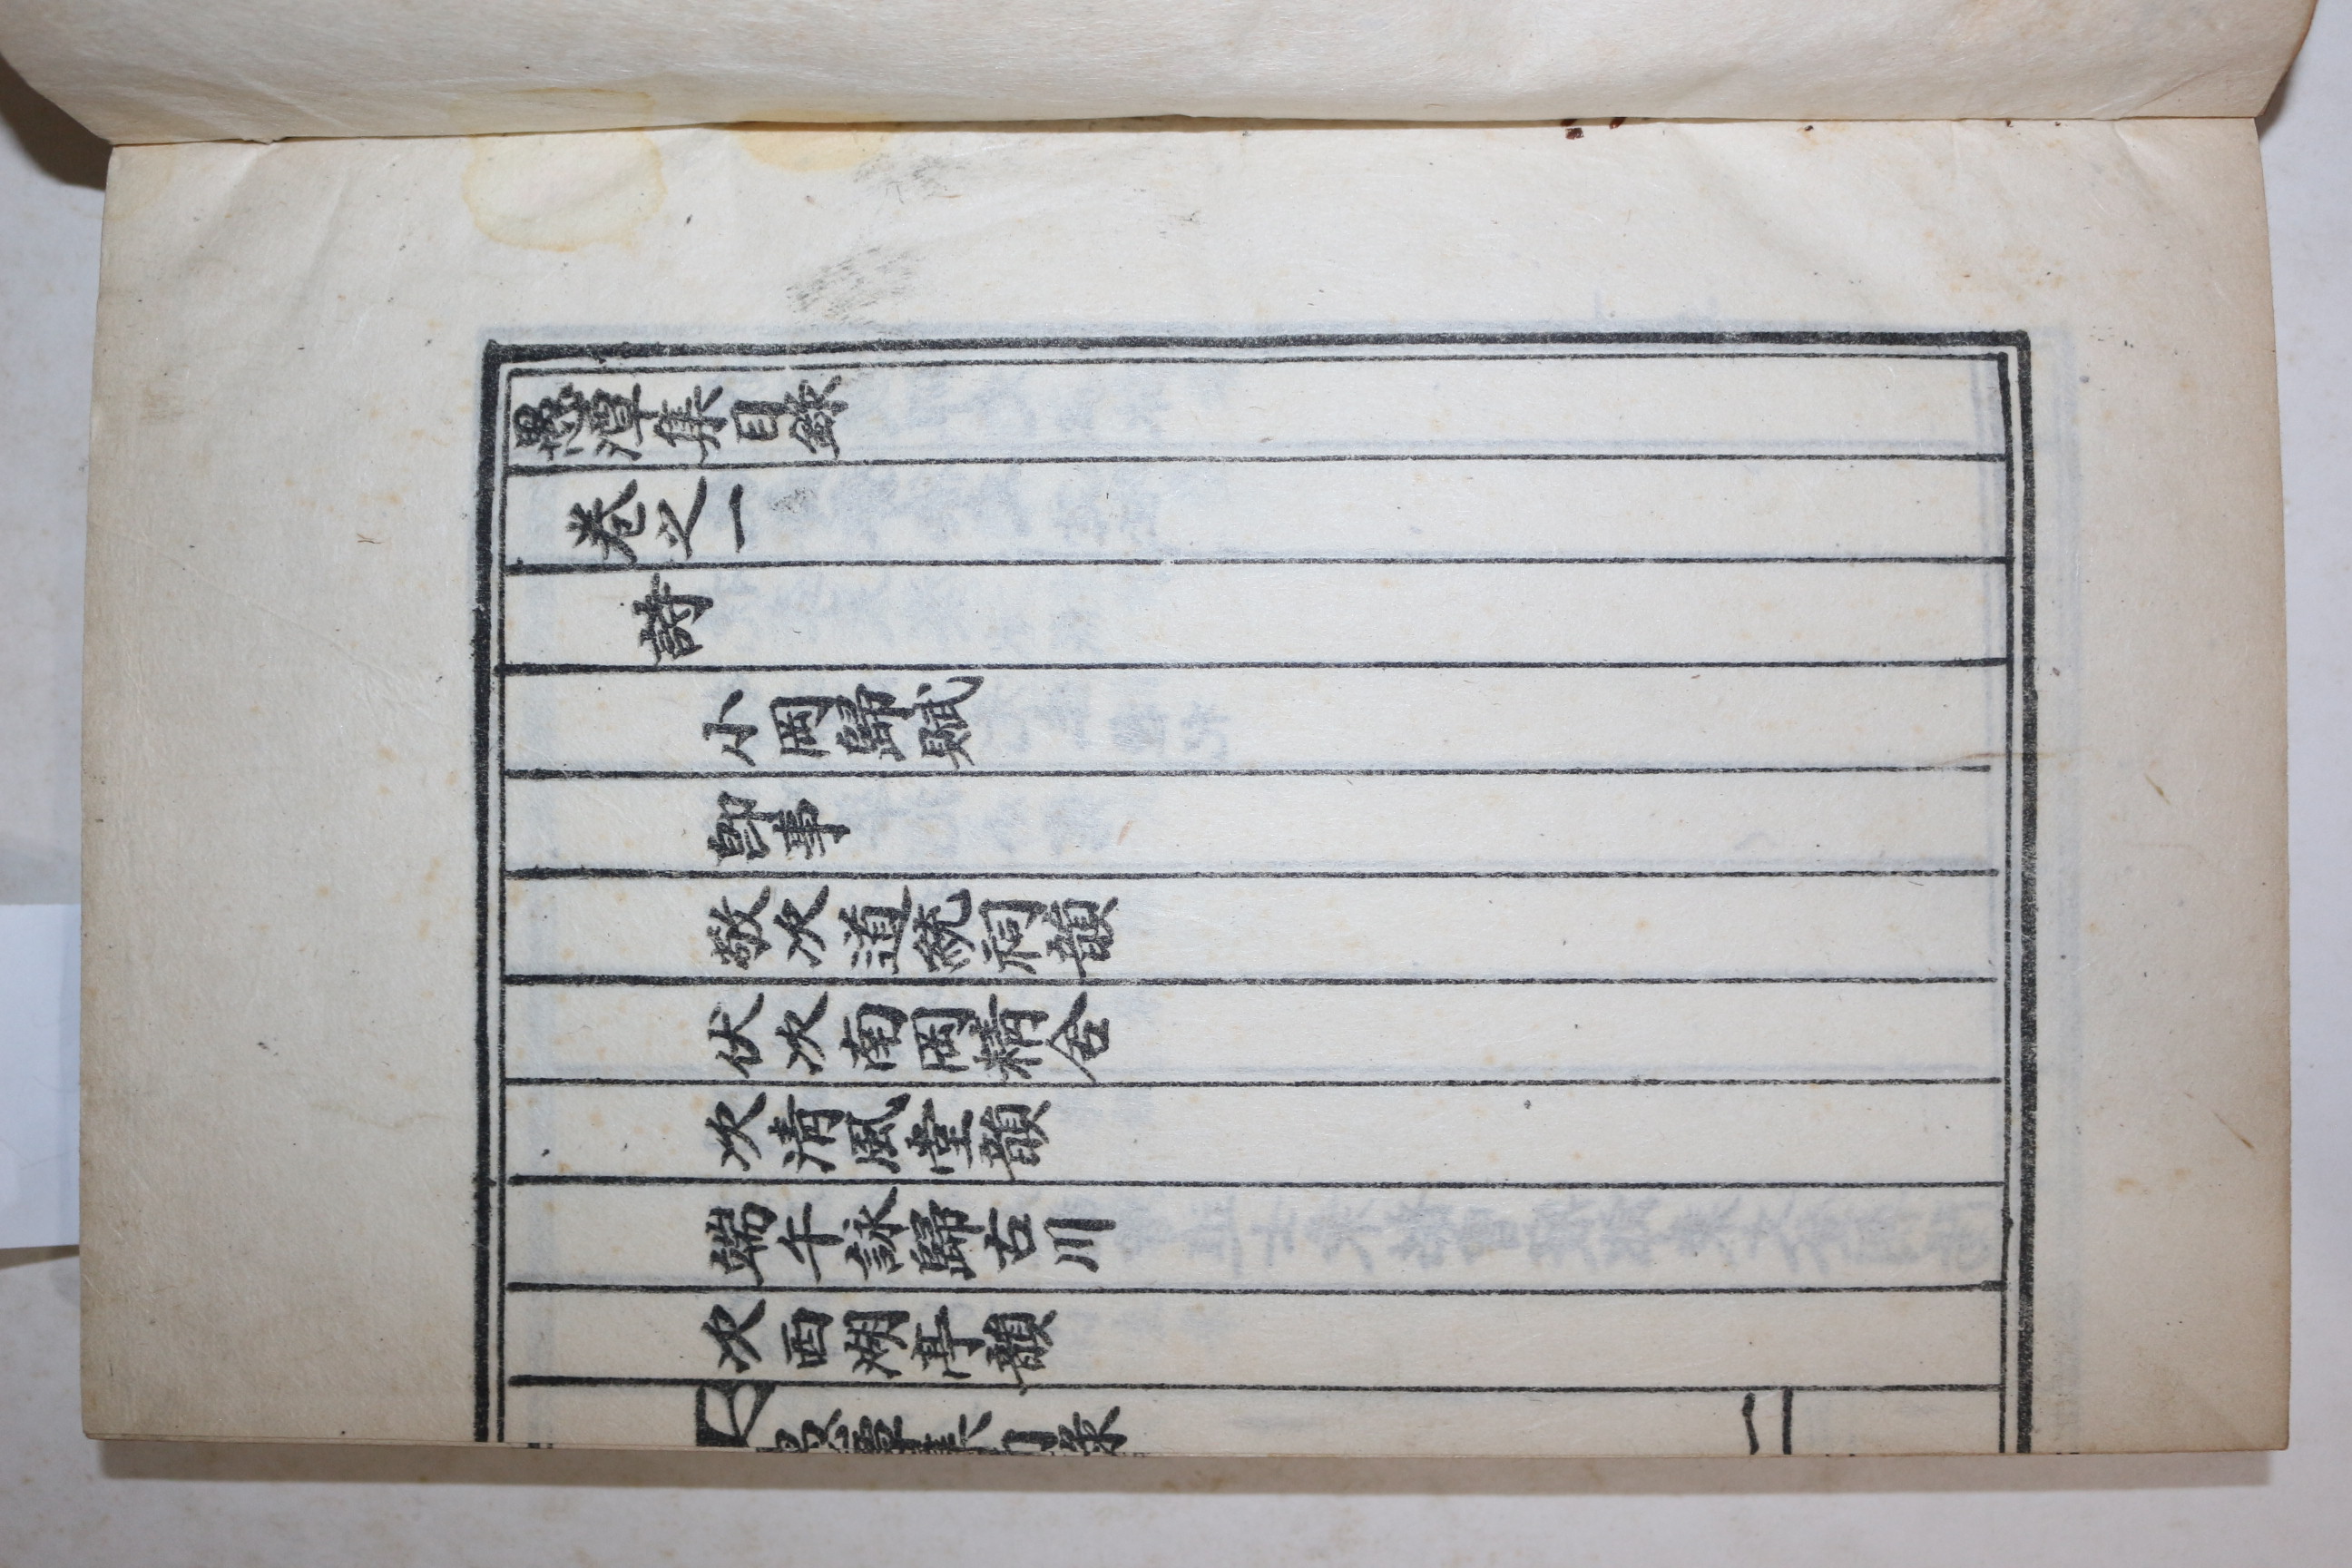 潭集目錄
卷之一
詩
小岡歸賦
卽事
敬次道統祠韻
伏次南岡精舍
次淸風堂韻
端午詠歸古川
次西湖亭韻
潭集目錄